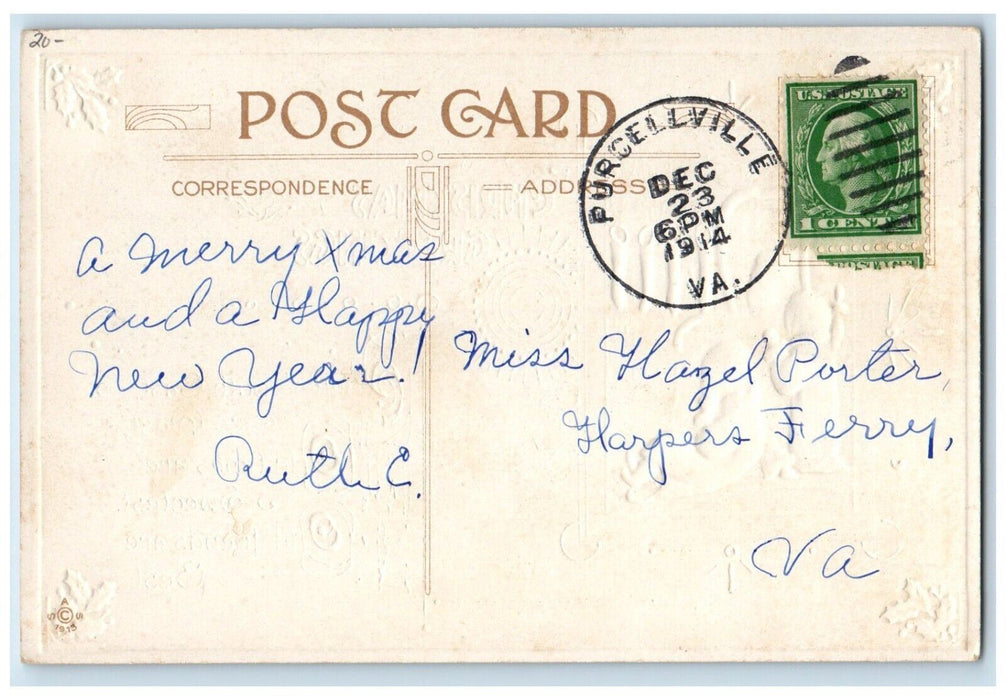 20-
POST CARD
CORRESPONDENCE
ADDRESS
PURCELLVILLE
DEC
23
6 PM
1914
VA.
U.S. POSTAGE
1 CENT
POSTAGE
A Merry Xmas
and a Happy
New Year!
Ruth E.
Miss Hazel Porter,
Harpers Ferry,
Va
A
S © S
1913